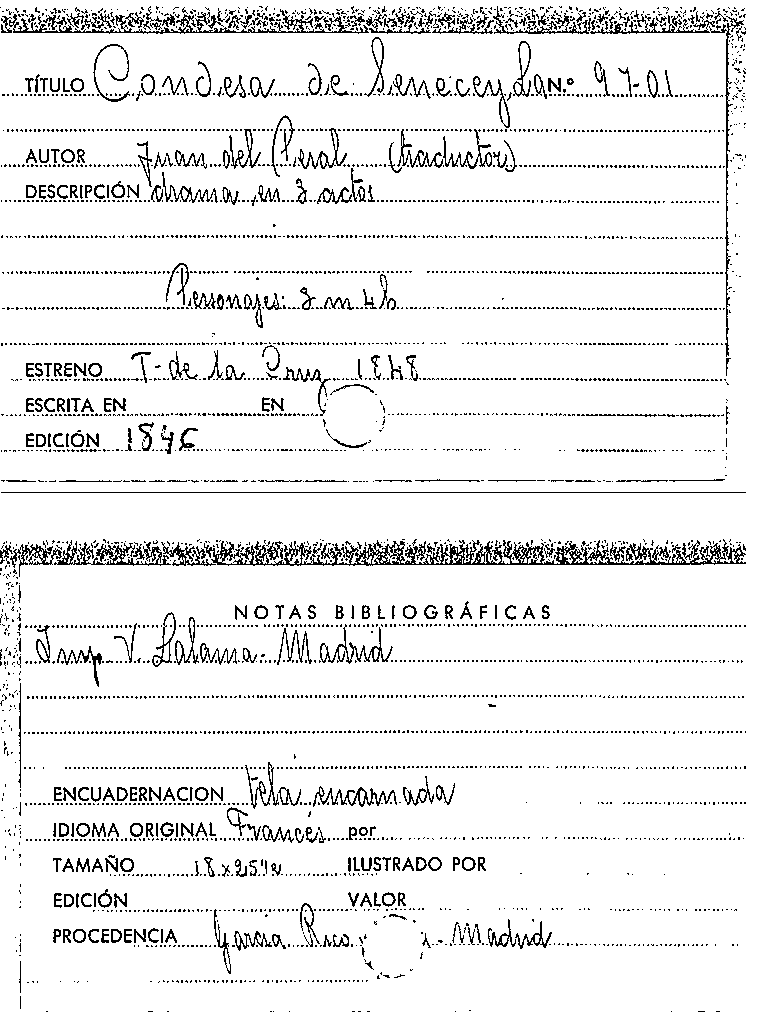 TÍTULO Condesa de Senecey La N.º 97-01
AUTOR Juan del Peral (traductor)
DESCRIPCIÓN drama en 3 actos
Personajes: 3 m 4 h
ESTRENO T. de la Cruz 1848
ESCRITA EN EN
EDICIÓN 1846
NOTAS BIBLIOGRÁFICAS
Imp. V. Lalama - Madrid
ENCUADERNACION tela encarnada
IDIOMA ORIGINAL Francés por
TAMAÑO 18 x 25½ ILUSTRADO POR
EDICIÓN VALOR
PROCEDENCIA García Rico - Madrid